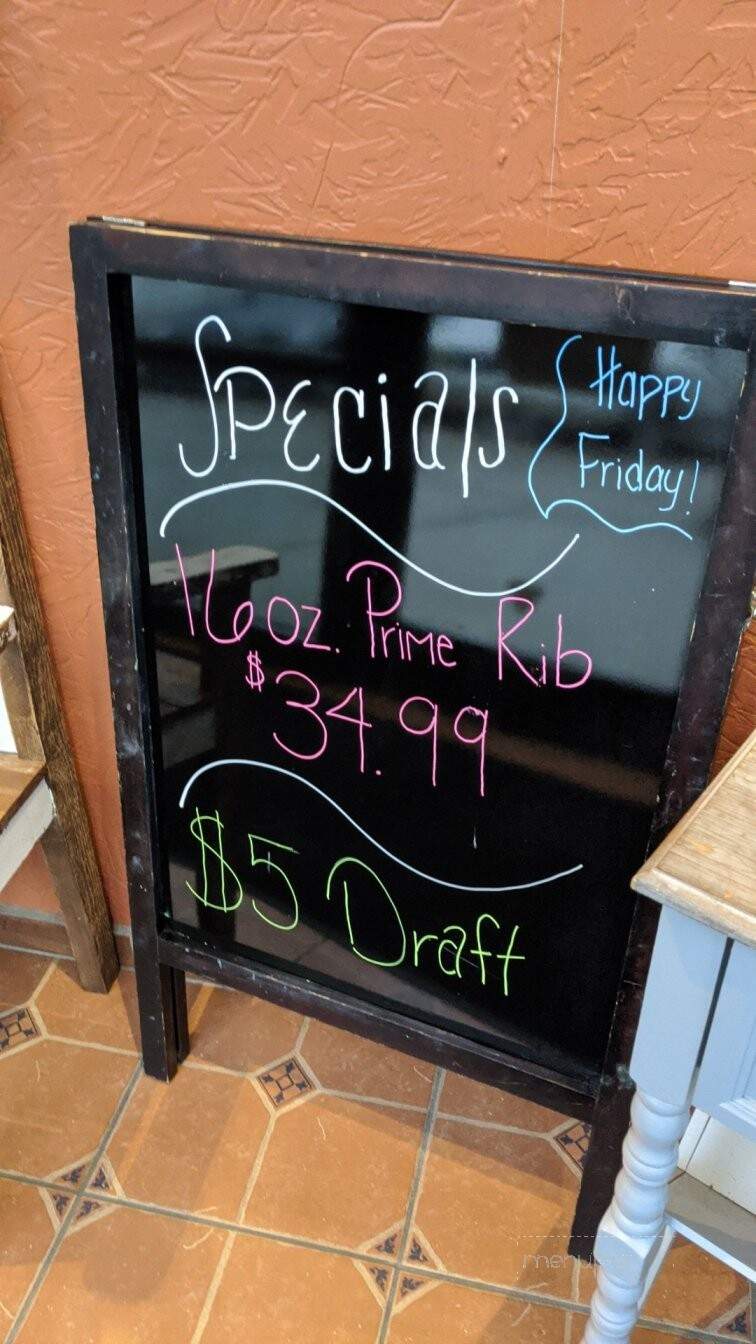 Specials
Happy
Friday!
16 oz. Prime Rib
$34.99
$5 Draft